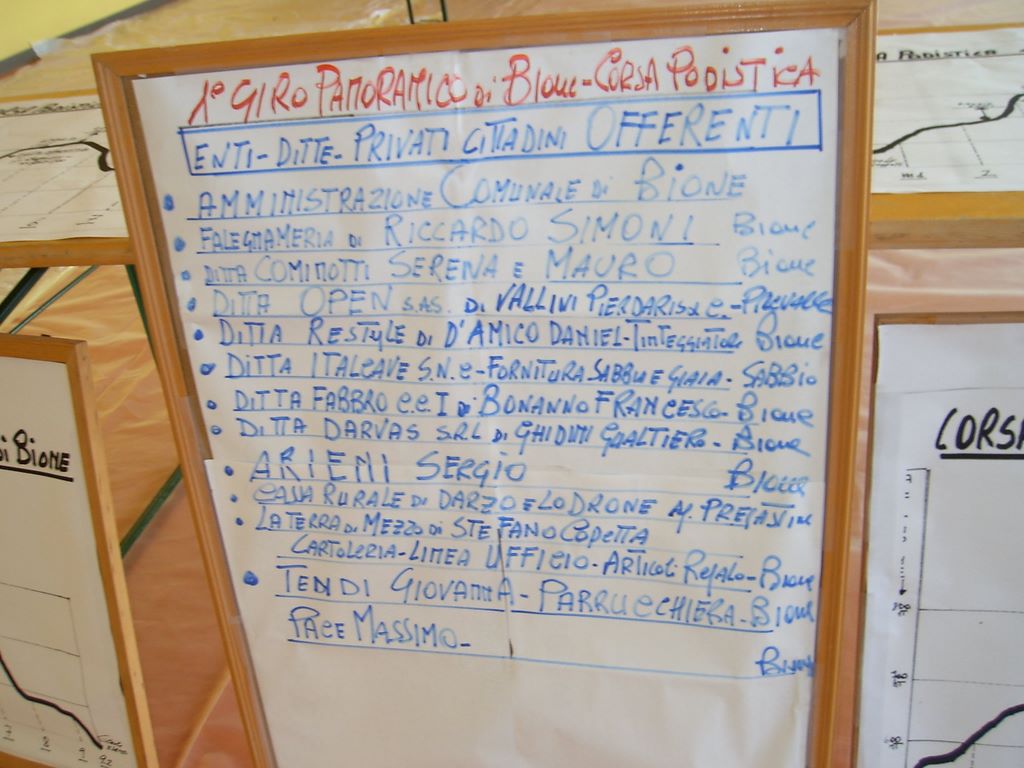 1° GIRO PANORAMICO di Bione - CORSA PODISTICA
ENTI - DITTE - PRIVATI CITTADINI OFFERENTI
• AMMINISTRAZIONE COMUNALE di BIONE
• FALEGNAMERIA DI RICCARDO SIMONI Bione
• DITTA COMINOTTI SERENA E MAURO Bione
• DITTA OPEN S.AS. DI VALLINI PIERDARIS & C. - PREVALLE
• DITTA RESTYLE DI D'AMICO DANIEL - TINTEGGIATORE Bione
• DITTA ITALCAVE S.N.C - FORNITURA SABBIA E GHIAIA - SABBIO
• DITTA FABBRO C.E.I di BONANNO FRANCESCO - Bione
• DITTA DARVAS SRL DI GHIDINI GUALTIERO - Bione
• ARIENI SERGIO Bione
• CASA RURALE DI DARZO E LODRONE
• LA TERRA DI MEZZO DI STEFANO COPETTA
CARTOLERIA - LINEA UFFICIO - ARTICOLI REGALO - Bione
• TENDI GIOVANNA - PARRUCCHIERA - Bione
PACE MASSIMO - Bione
A PODISTICA
di Bione
CORSA